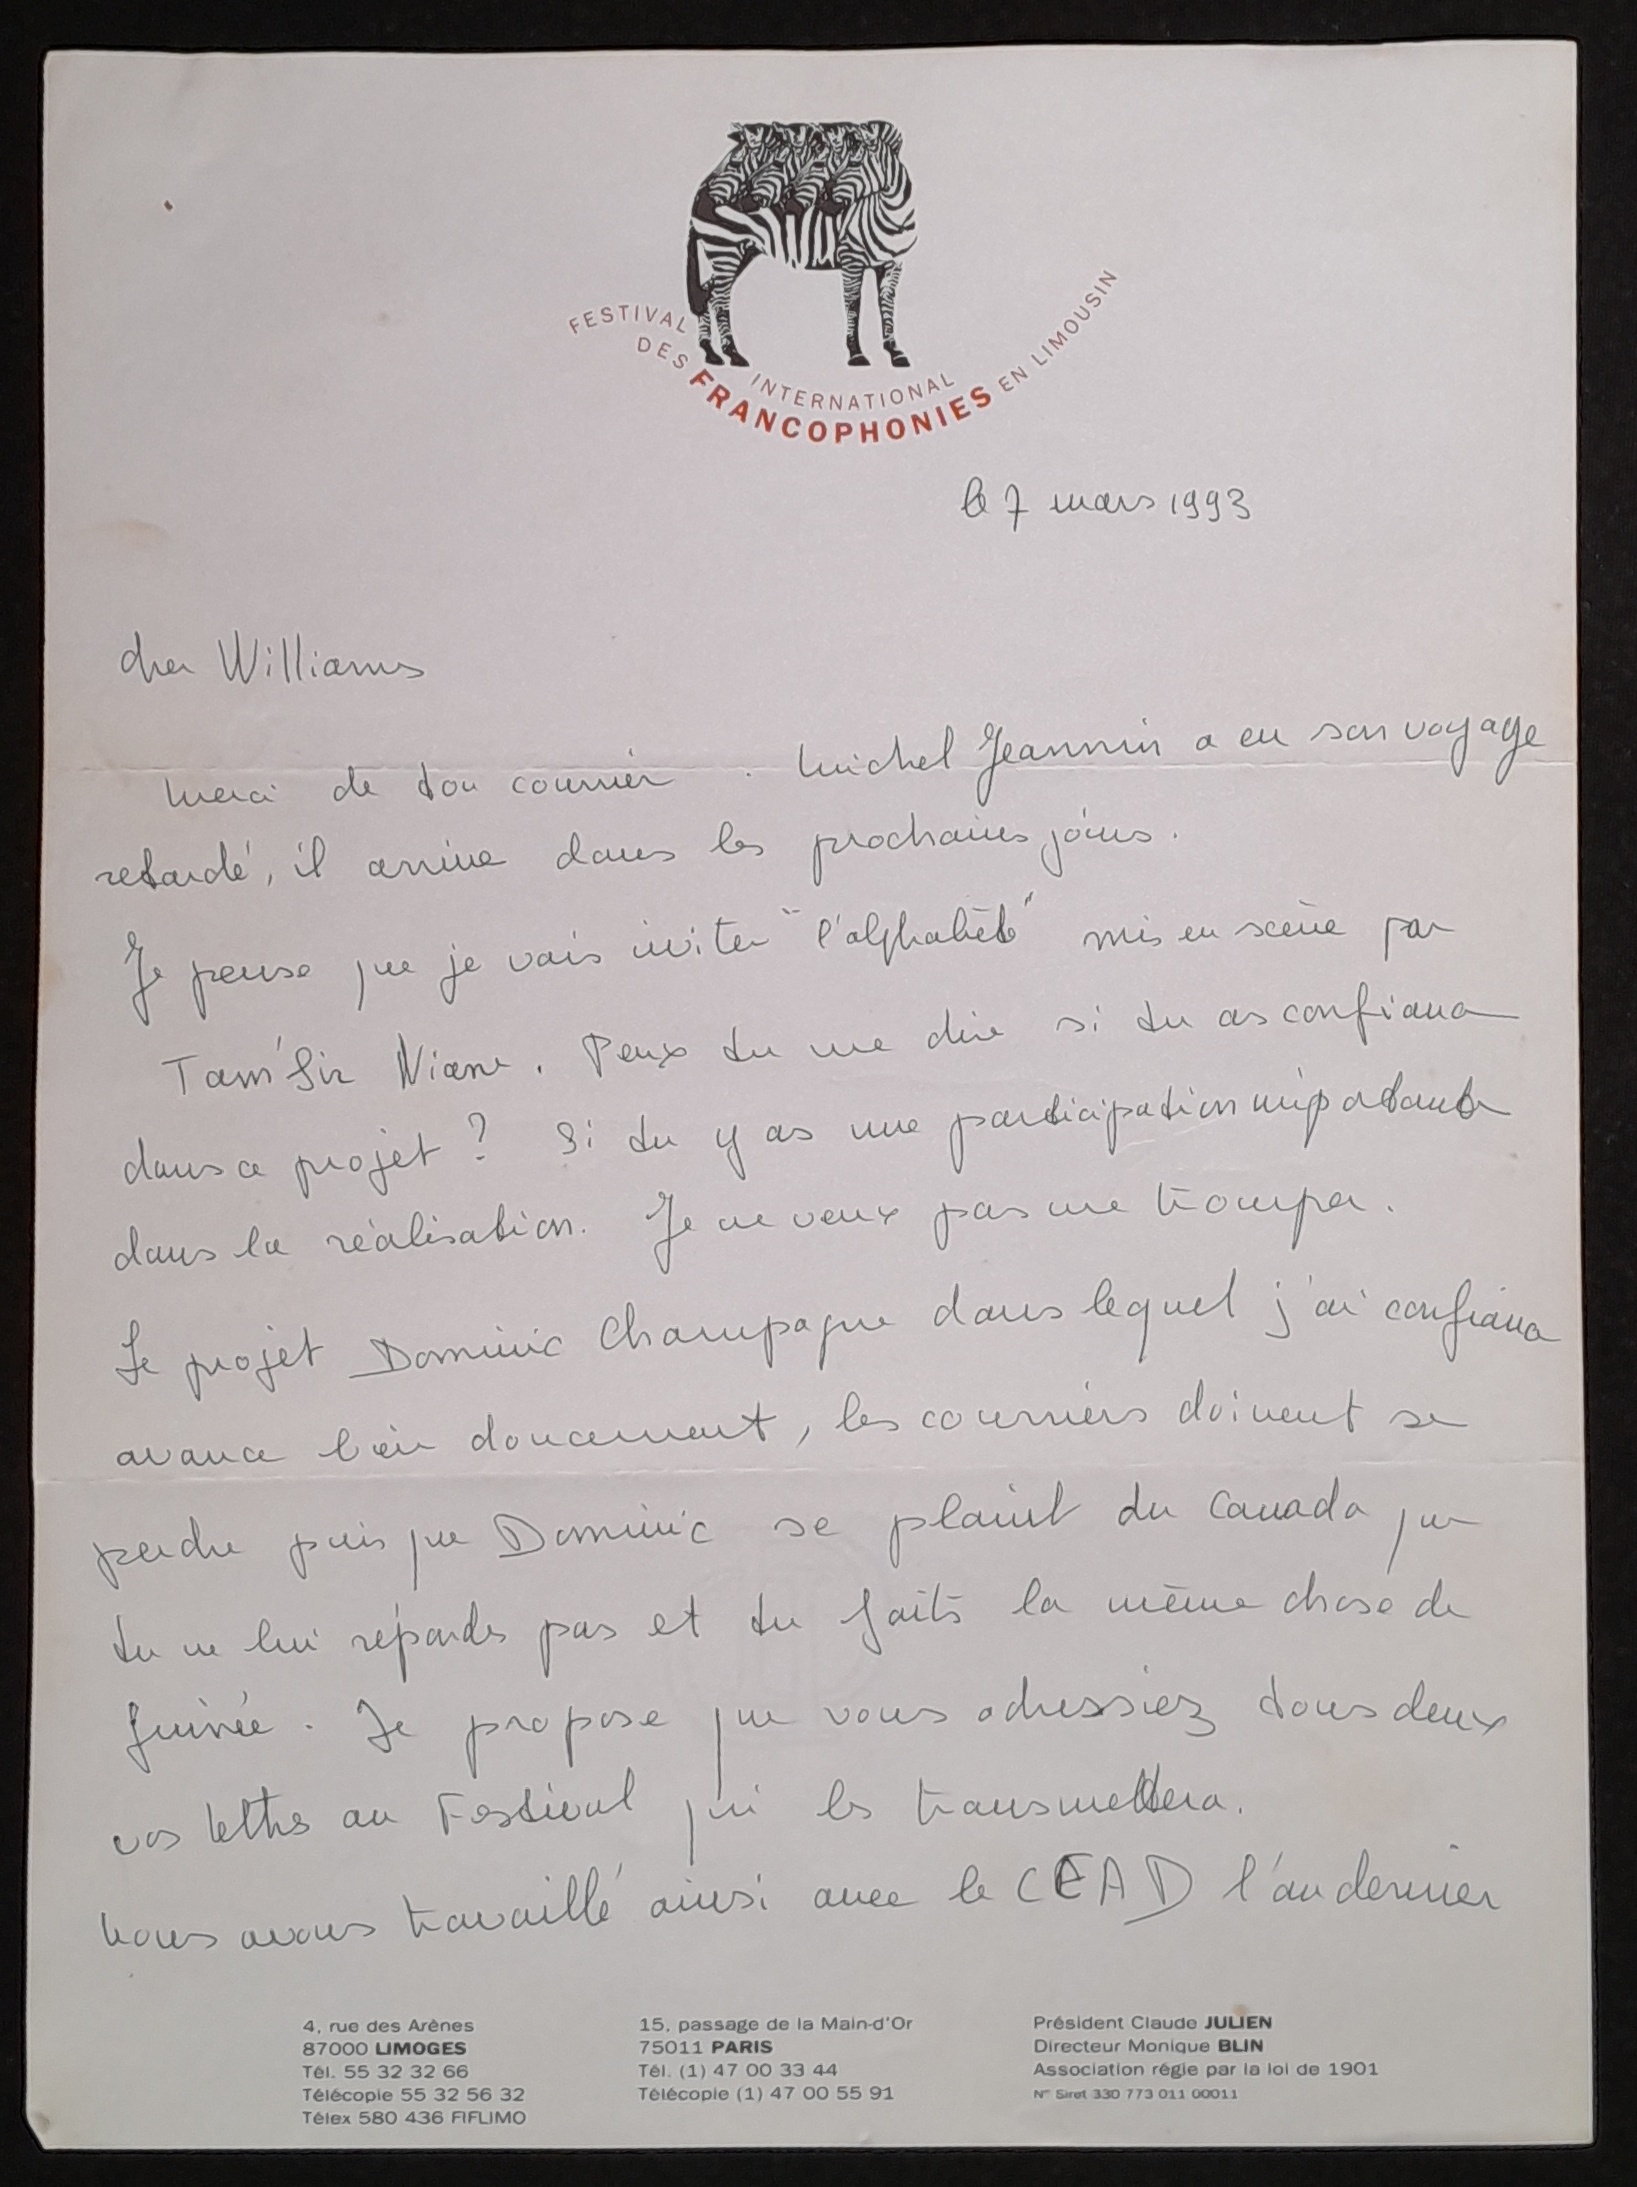 FESTIVAL INTERNATIONAL
DES FRANCOPHONIES EN LIMOUSIN
le 7 mars 1993
cher Williams
Merci de ton courrier . Michel Jeannin a eu son voyage
retardé, il arrive dans les prochains jours.
Je pense que je vais inviter "l'alphabète" mis en scène par
Tam'Sir Niane . Peux tu me dire si tu as confiance
dans ce projet ? Si tu y as une participation importante
dans la réalisation. Je ne veux pas me tromper.
Le projet Dominic Champagne dans lequel j'ai confiance
avance bien doucement, les courriers doivent se
perdre puis que Dominic se plaint du Canada que
tu ne lui réponds pas et tu faits la même chose de
Guinée . Je propose que vous adressiez tous deux
vos lettres au Festival qui les transmettera.
Nous avons travaillé ainsi avec le CEAD l'an dernier
4, rue des Arènes
87000 LIMOGES
Tél. 55 32 32 66
Télécopie 55 32 56 32
Télex 580 436 FIFLIMO
15, passage de la Main-d'Or
75011 PARIS
Tél. (1) 47 00 33 44
Télécopie (1) 47 00 55 91
Président Claude JULIEN
Directeur Monique BLIN
Association régie par la loi de 1901
N° Siret 330 773 011 00011